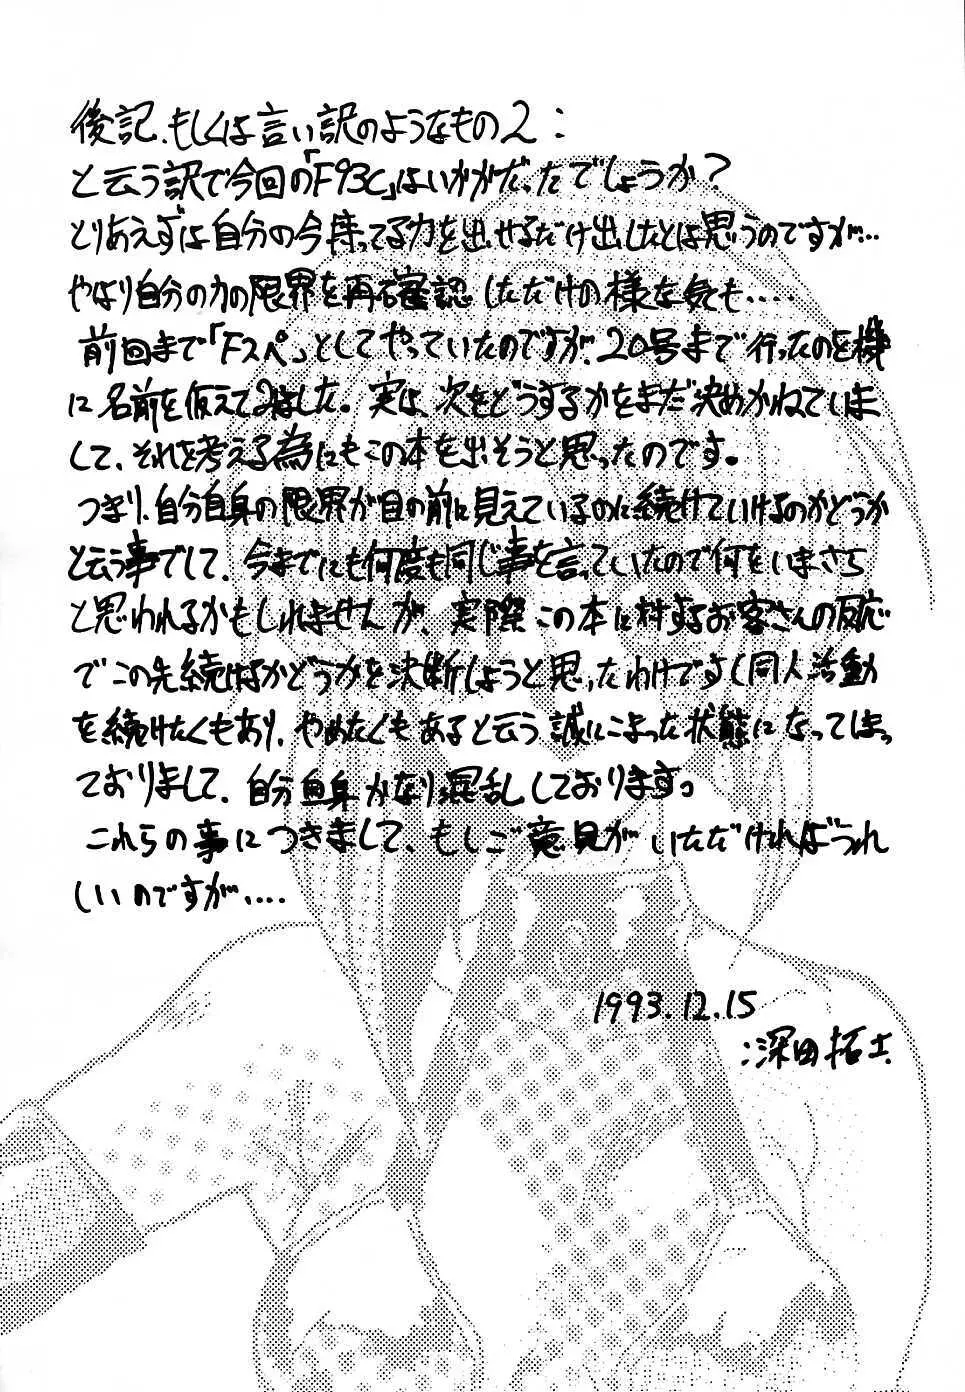 後記、もしくは言い訳のようなもの2:
と云う訳で今回の「F93C」はいかがだったでしょうか?
とりあえずは自分の今持ってる力を出せるだけ出したとは思うのですが…
やはり自分の力の限界を再確認しただけの様な気も‥‥
前回まで「Fスペ」としてやっていたのですが、20号まで行ったのを機
に名前を変えてみました。実は、次をどうするかをまだ決めかねていま
して、それを考える為にもこの本を出そうと思ったのです。
つまり、自分自身の限界が目の前に見えているのに続けていけるのかどうか
と云う事でして、今までにも何度も同じ事を言っていたので何をいまさら
と思われるかもしれませんが、実際この本に対するお客さんの反応
でこの先続けるかどうかを決断しようと思ったわけです(同人活動
を続けたくもあり、やめたくもあると云う誠にこまった状態になってしまっ
ておりまして、自分自身かなり混乱しております。
これらの事につきまして、もしご意見がいただければうれ
しいのですが‥‥
1993.12.15
:深田拓士